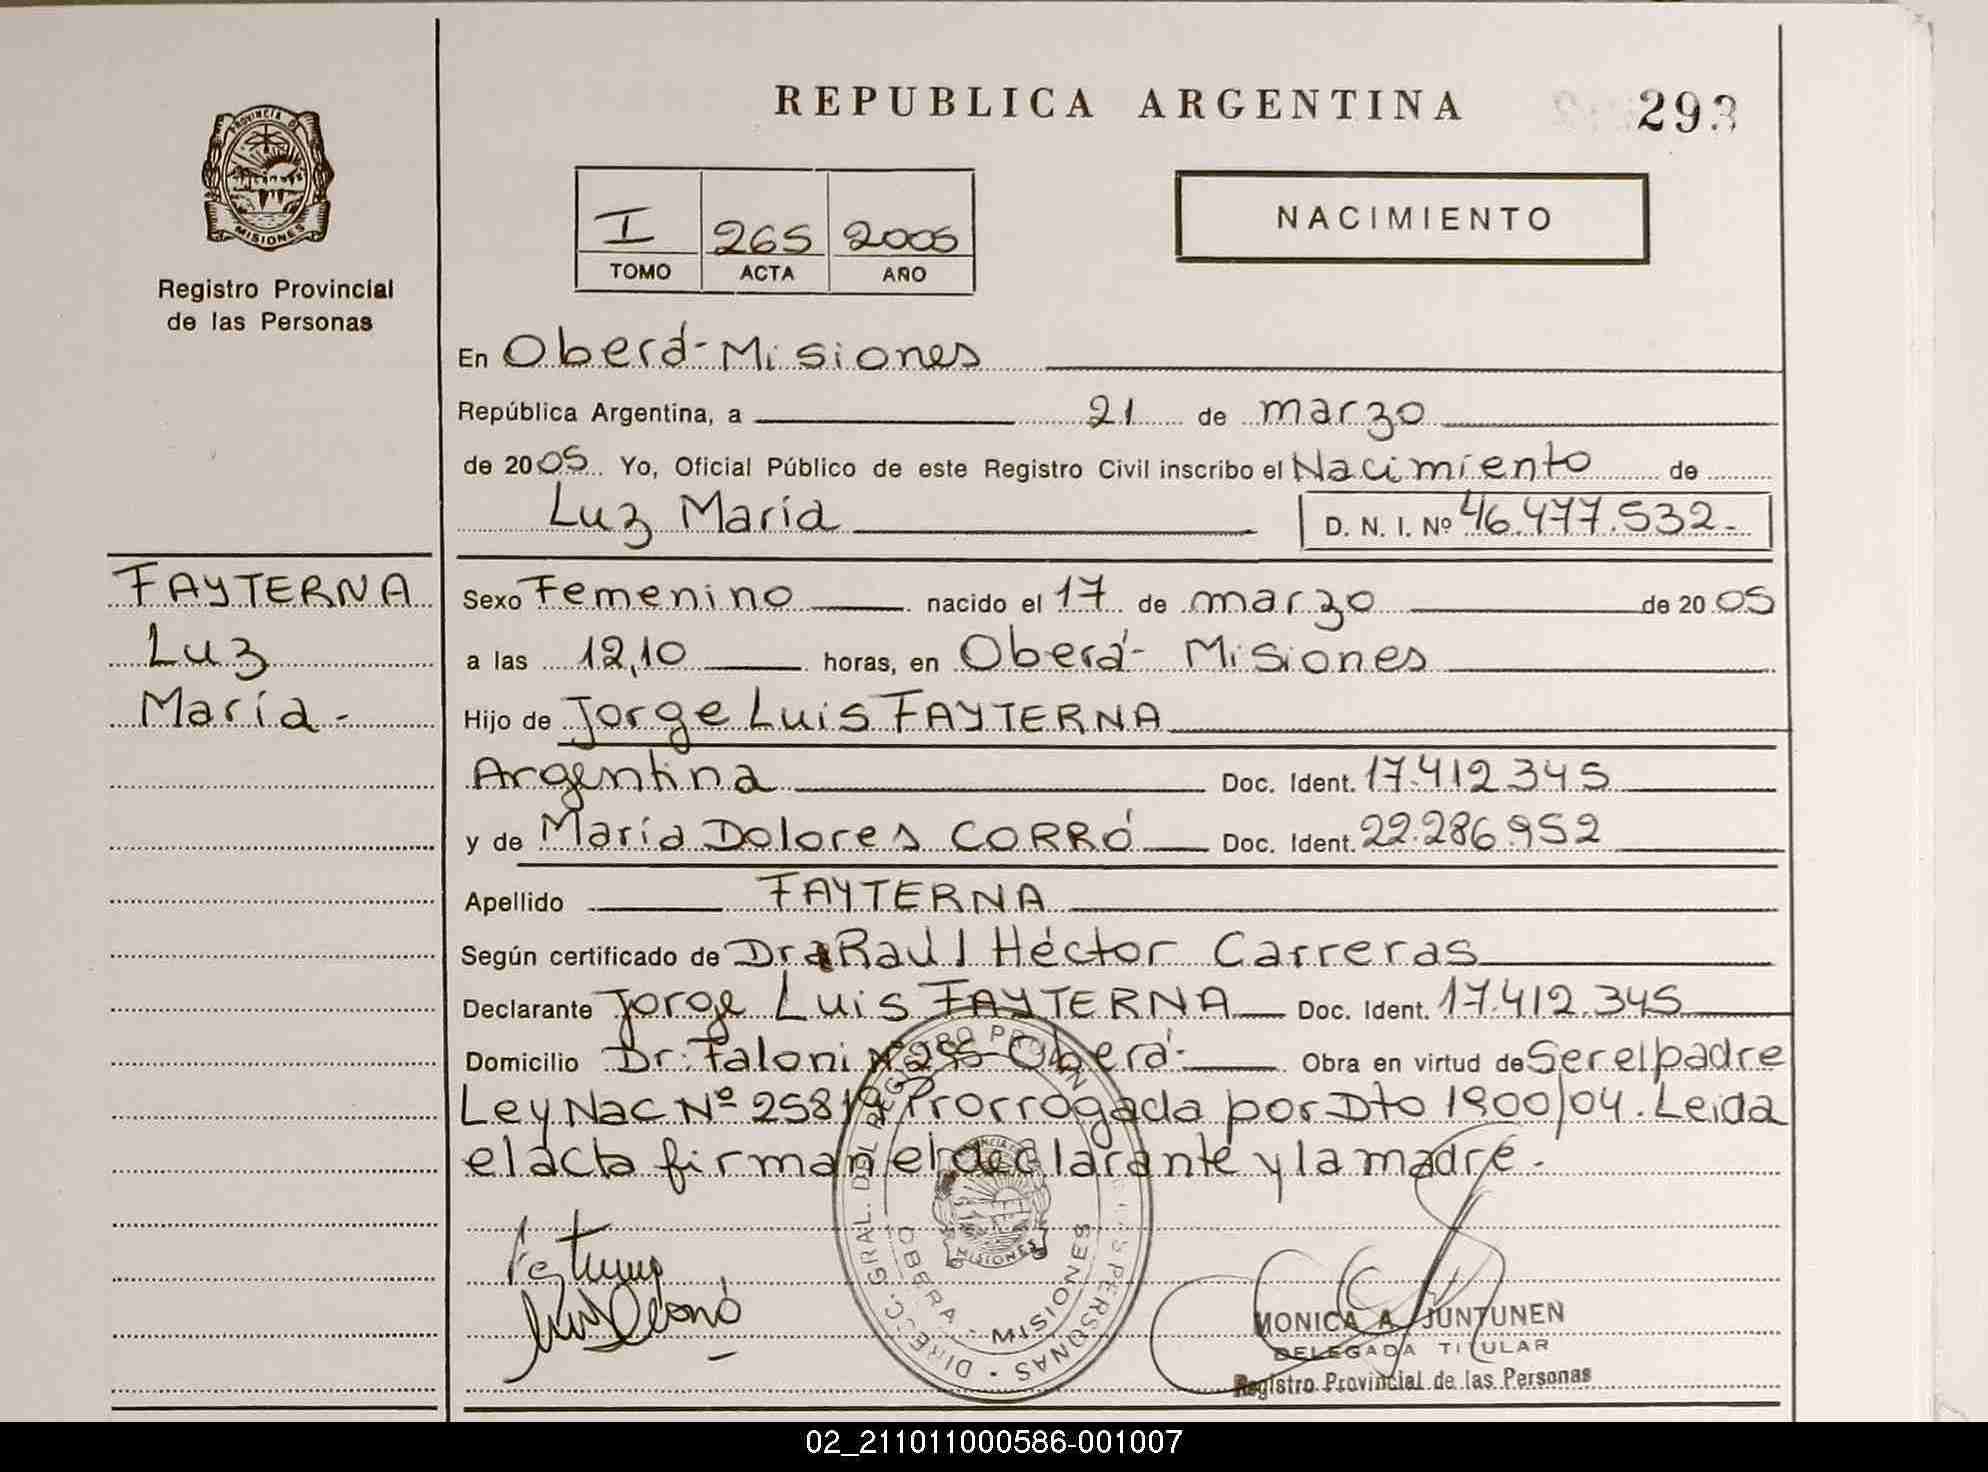 REPUBLICA ARGENTINA
293
PROVINCIA DE
MISIONES
Registro Provincial
de las Personas
I 265 2005
TOMO ACTA AÑO
NACIMIENTO
En Oberá-Misiones
República Argentina, a 21 de marzo
de 2005 Yo, Oficial Público de este Registro Civil inscribo el Nacimiento de
Luz María D. N. I. Nº 46.477.532.-
FAYTERNA
Luz
María-
Sexo Femenino nacido el 17 de marzo de 2005
a las 12,10 horas, en Oberá- Misiones
Hijo de Jorge Luis FAYTERNA
Argentina Doc. Ident. 17.412.345
y de María Dolores CORRÓ Doc. Ident. 22.286.952
Apellido FAYTERNA
Según certificado de Dr. Raúl Héctor Carreras
Declarante Jorge Luis FAYTERNA Doc. Ident. 17.412.345
Domicilio Dr: Faloni Nº Oberá- Obra en virtud de Ser el padre
Ley Nac Nº 25819 Prorrogada por Dto 1900/04. Leida
el acta firman el declarante y la madre.-
DIRECC. GRAL. DEL REGISTRO PERSONAS
OBERA - MISIONES
MISIONES
MONICA A. JUNTUNEN
DELEGADA TITULAR
Registro Provincial de las Personas
02_211011000586-001007